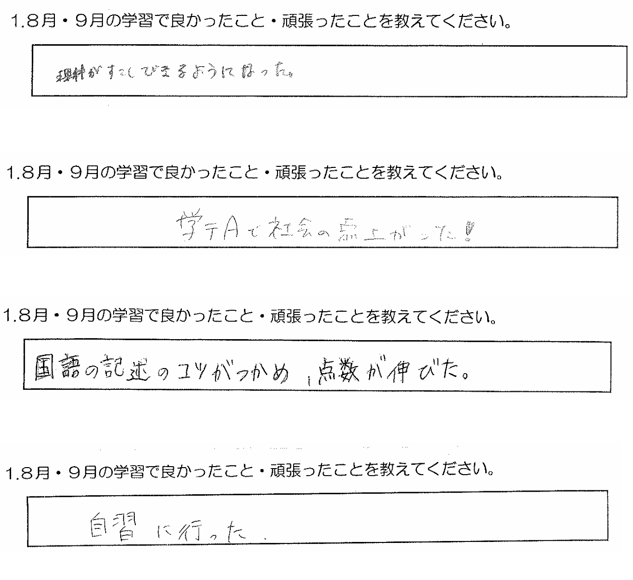 1.8月・9月の学習で良かったこと・頑張ったことを教えてください。
理科がすこしできるようになった。
1.8月・9月の学習で良かったこと・頑張ったことを教えてください。
学テAで社会の点上がった!
1.8月・9月の学習で良かったこと・頑張ったことを教えてください。
国語の記述のコツがつかめ、点数が伸びた。
1.8月・9月の学習で良かったこと・頑張ったことを教えてください。
自習に行った.